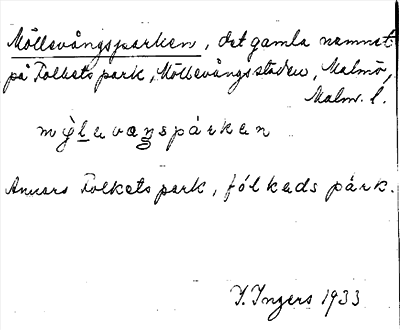 Möllevångsparken, det gamla namnet
på Folkets park, Möllevångsstaden, Malmö,
Malm. l.
Annars Folkets park, fólkads párk.
I. Ingers 1933